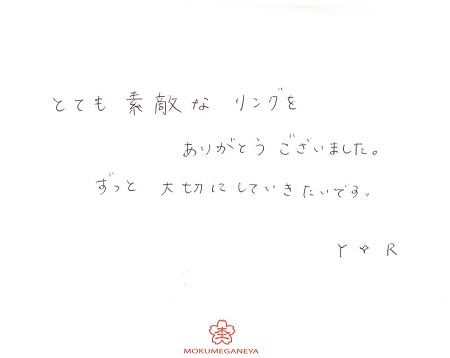 とても 素敵な リングを
ありがとう ございました。
ずっと 大切にしていきたいです。
Y ✧ R
MOKUMEGANEYA